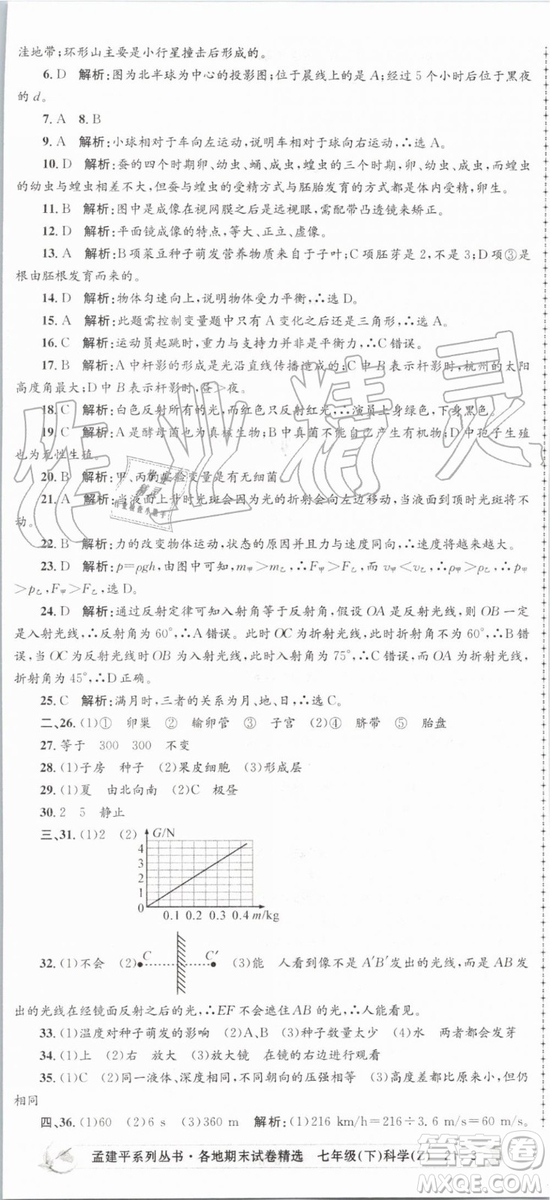 洼地带;环形山主要是小行星撞击后形成的。
6. D 解析:图为北半球为中心的投影图;位于晨线上的是A;大约过5个小时后位于黑夜
的d。
7. A 8. B
9. A 解析:小球相对于车向左运动,小球相对于球向右运动,∴选A。
10. D 解析:蚕的四个时期卵、幼虫、蛹、成虫,蝗虫的三个时期卵、幼虫、成虫。蝗虫的幼
虫与成虫相差不大,但蚕与蝗虫的受精方式与胚胎发育的方式相同,体内受精,卵生。
11. B 解析:图中是成像在视网膜之后是远视眼,需配带凸透镜来矫正。
12. D 解析:平面镜成像的大小不变,正立,虚像。
13. A 解析:B项菜豆种子萌发营养物质来自于子叶;C项胚芽是2,不是3;D项③是
根由胚根发育来的。
14. D 解析:物体匀速向上,受力平衡,∴选D。
15. A 解析:此题需控制变量题中只有A变化之后还是三角形,∴选A。
16. C 解析:运动员起跳时,力的作用是相互的,∴C错误。
17. B 解析:A中杆影的形成是光沿直线传播造成的;C中B表示杆影时,杭州的太阳
高度角最大;D中A表示杆影时,我国各地昼长夜短。
18. C 解析:白色反射所有光,而红色只反射红光,∴演员上身绿色,下身黑色。
19. C 解析:A是酵母菌也是真核生物;B中真菌不能自己合成有机物;D孢子生殖
也为无性生殖。
20. B 解析:甲、丙实验变量是有无细菌。
21. A 解析:当液面上升时光斑会因为光的折射会向左边移动,当液面下降时光斑将不
动。
22. B 解析:力的改变物体运动,状态的最后结果,∴速度将越来越大。
23. D 解析:p=ρgh,由图可知,m甲>m乙,而v甲<v乙,∴ρ甲>ρ乙,∴p甲
>p乙,F甲>F乙,∴选D。
24. D 解析:通过反射定律可知入射角等于反射角,假设OA是反射光线,而OB一定
是入射光线,∴反射角为60°,∴A错误。此时OC为折射光线,此时折射角为60°,∴B错
误。当OC为反射光线时OB为入射光线,此时入射角为75°,∴C错误,而OA为折射光线,
折射角为45°,∴D正确。
25. C 解析:满月时,三者的关系为月、地、日,∴选C。
二、26. (1)① 卵巢 ② 输卵管 ③ 子宫 (2)④ 脐带 ⑤ 胎盘
27. 等于 300 300 不变
28. (1)子房 种子 (2)果皮细胞 (3)形成层
29. (1)夏 由北向南 (2)C 极昼
30. 2 5 静止
三、31. (1)2 (2) G/N
4
3
2
1
0 0.1 0.2 0.3 0.4 m/kg
32. (1)不会 (2) C C′ (3)能 人眼看到的是从A′B′发出的光线,而是AB发
出的光线在经镜面反射之后的光,∴EF不会遮住AB的光,∴人能看见。
33. (1)温度对种子萌发的影响 (2)种子数量太少 (3)水 两者都会发芽
34. (1)上 右 放大 (2)放大镜 应在镜的右边进行观看
35. (1)C (2)同一液体、深度相同的压强相等 (3)③④ (4)各个方向的压强大小
相同
四、36. (1)60 (2)6 s (3)360 m 解析:(1)216 km/h=216÷3.6 m/s=60 m/s
孟建平系列丛书·各地期末试卷精选 七年级(下)科学(Z) 21-3
作业精灵